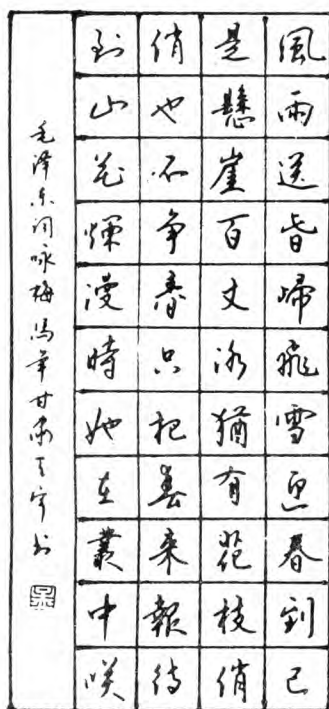 風雨送春歸飛雪迎春到已
是懸崖百丈冰猶有花枝俏
俏也不争春只把春來報待
到山花爛漫時她在叢中咲
毛泽东词咏梅冯年甘肃天宇书